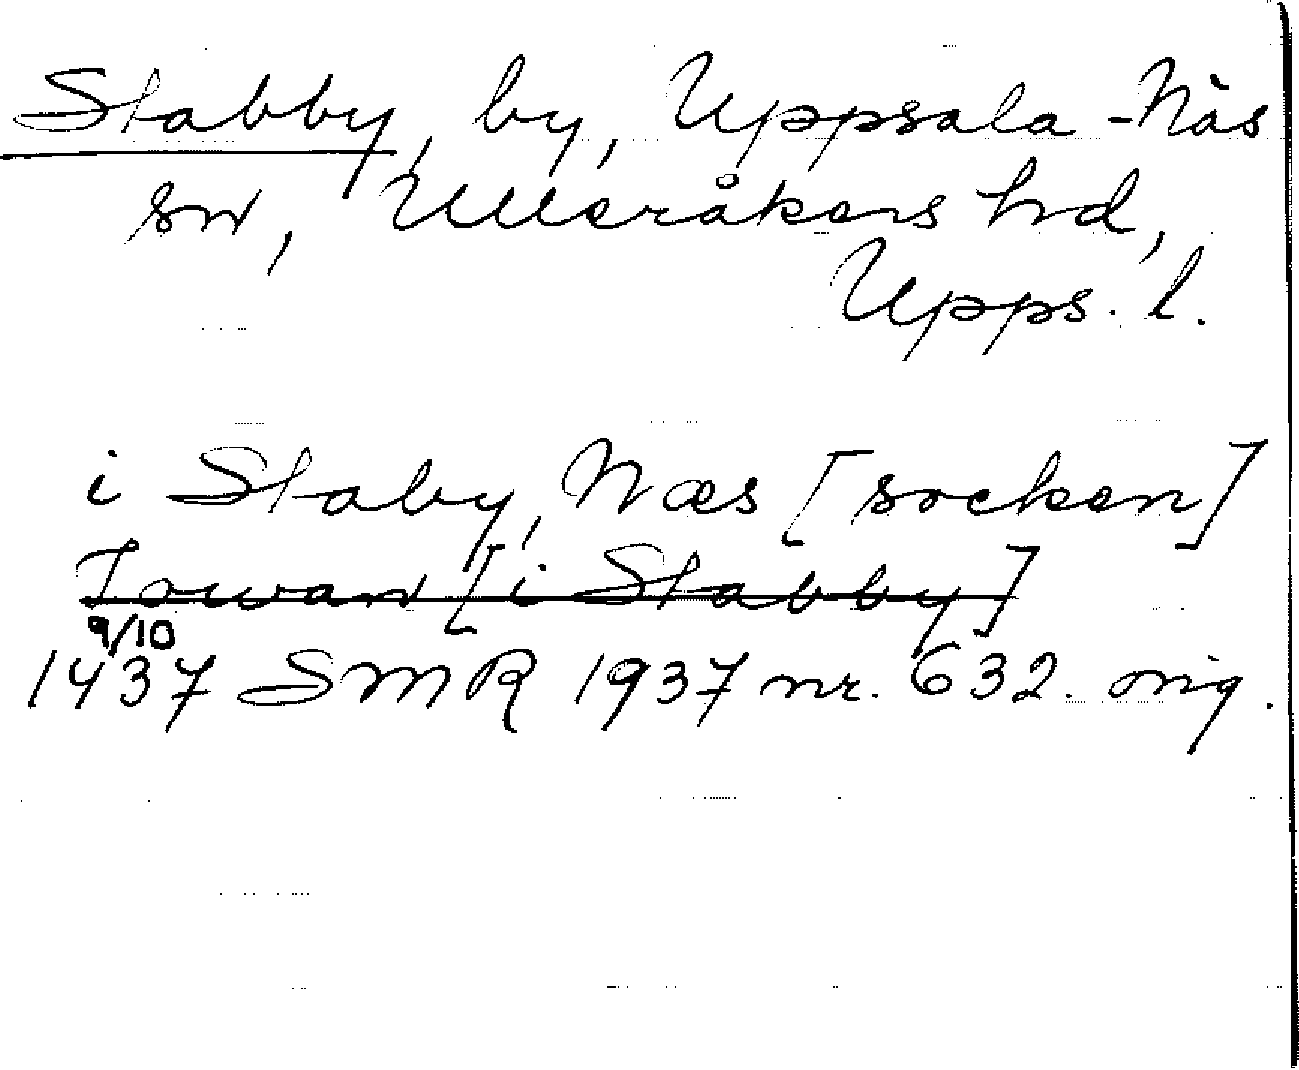 Stabby, by, Uppsala-Näs
sn, Ulleråkers hd,
Upps. l.
i Staby, Næs [socken]
[i Stabby]
9/10
1437 SMR 1937 nr. 632. orig.